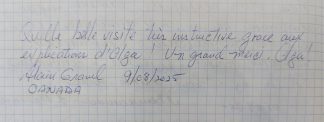 Quelle belle visite très instructive grace aux
explication d'Olza ! Un grand merci. Olza!
Alain Gravel 9/08/2025
CANADA